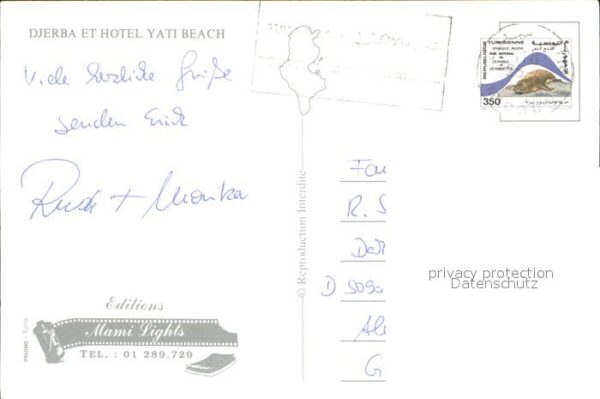 DJERBA ET HOTEL YATI BEACH
Viele herzliche Grüße
senden Euch
Rudi + Monika
Editions
Mami Lights
TEL. : 01 289.729
PRISME - Tunis
© Reproduction Interdite
REPUBLIQUE TUNISIENNE
350
Fa
R. S
Da
D 5090
Al
G
privacy protection
Datenschutz